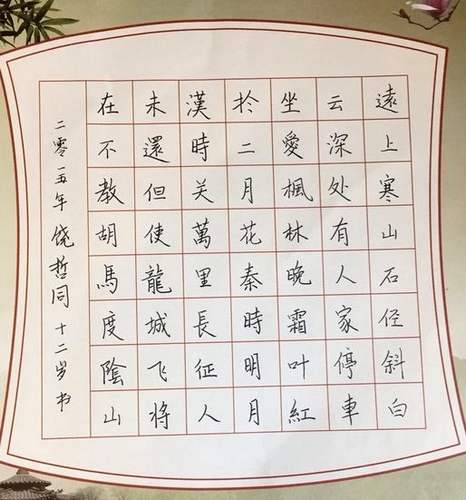 遠上寒山石径斜白
云深处有人家停車
坐愛楓林晚霜叶紅
扵二月花秦時明月
漢時关萬里長征人
未還但使龍城飞将
在不教胡馬度陰山
二零一五年 饶哲同 十二岁书